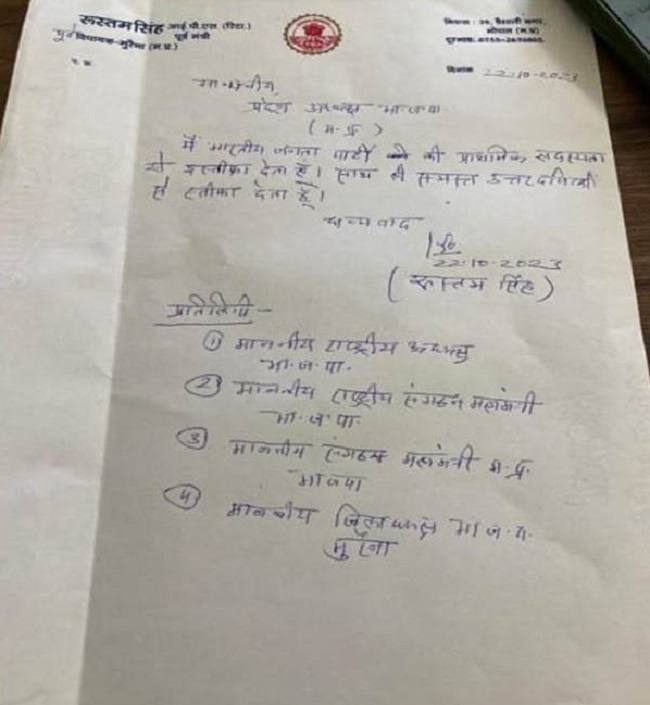 रूस्तम सिंह आई.पी.एस. (रिटा.)
पूर्व मंत्री
पूर्व विधायक-मुरैना (म.प्र.)
निवास : 39, वैशाली नगर,
भोपाल (म.प्र.)
दूरभाष : 0755-
दिनांक 22.10.2023
माननीय,
प्रदेश अध्यक्ष भा.ज.पा.
(म.प्र.)
मैं भारतीय जनता पार्टी की प्राथमिक सदस्यता
से इस्तीफा देता हूँ। साथ ही समस्त उत्तरदायित्वों
से स्तीफा देता हूँ।
धन्यवाद
22.10.2023
(रूस्तम सिंह)
प्रतिलिपी -
(1) माननीय राष्ट्रीय अध्यक्ष
भा.ज.पा.
(2) माननीय राष्ट्रीय संगठन महामंत्री
भा.ज.पा.
(3) माननीय संगठन महामंत्री म.प्र.
भाजपा
(4) माननीय जिलाध्यक्ष भा.ज.पा.
मुरैना